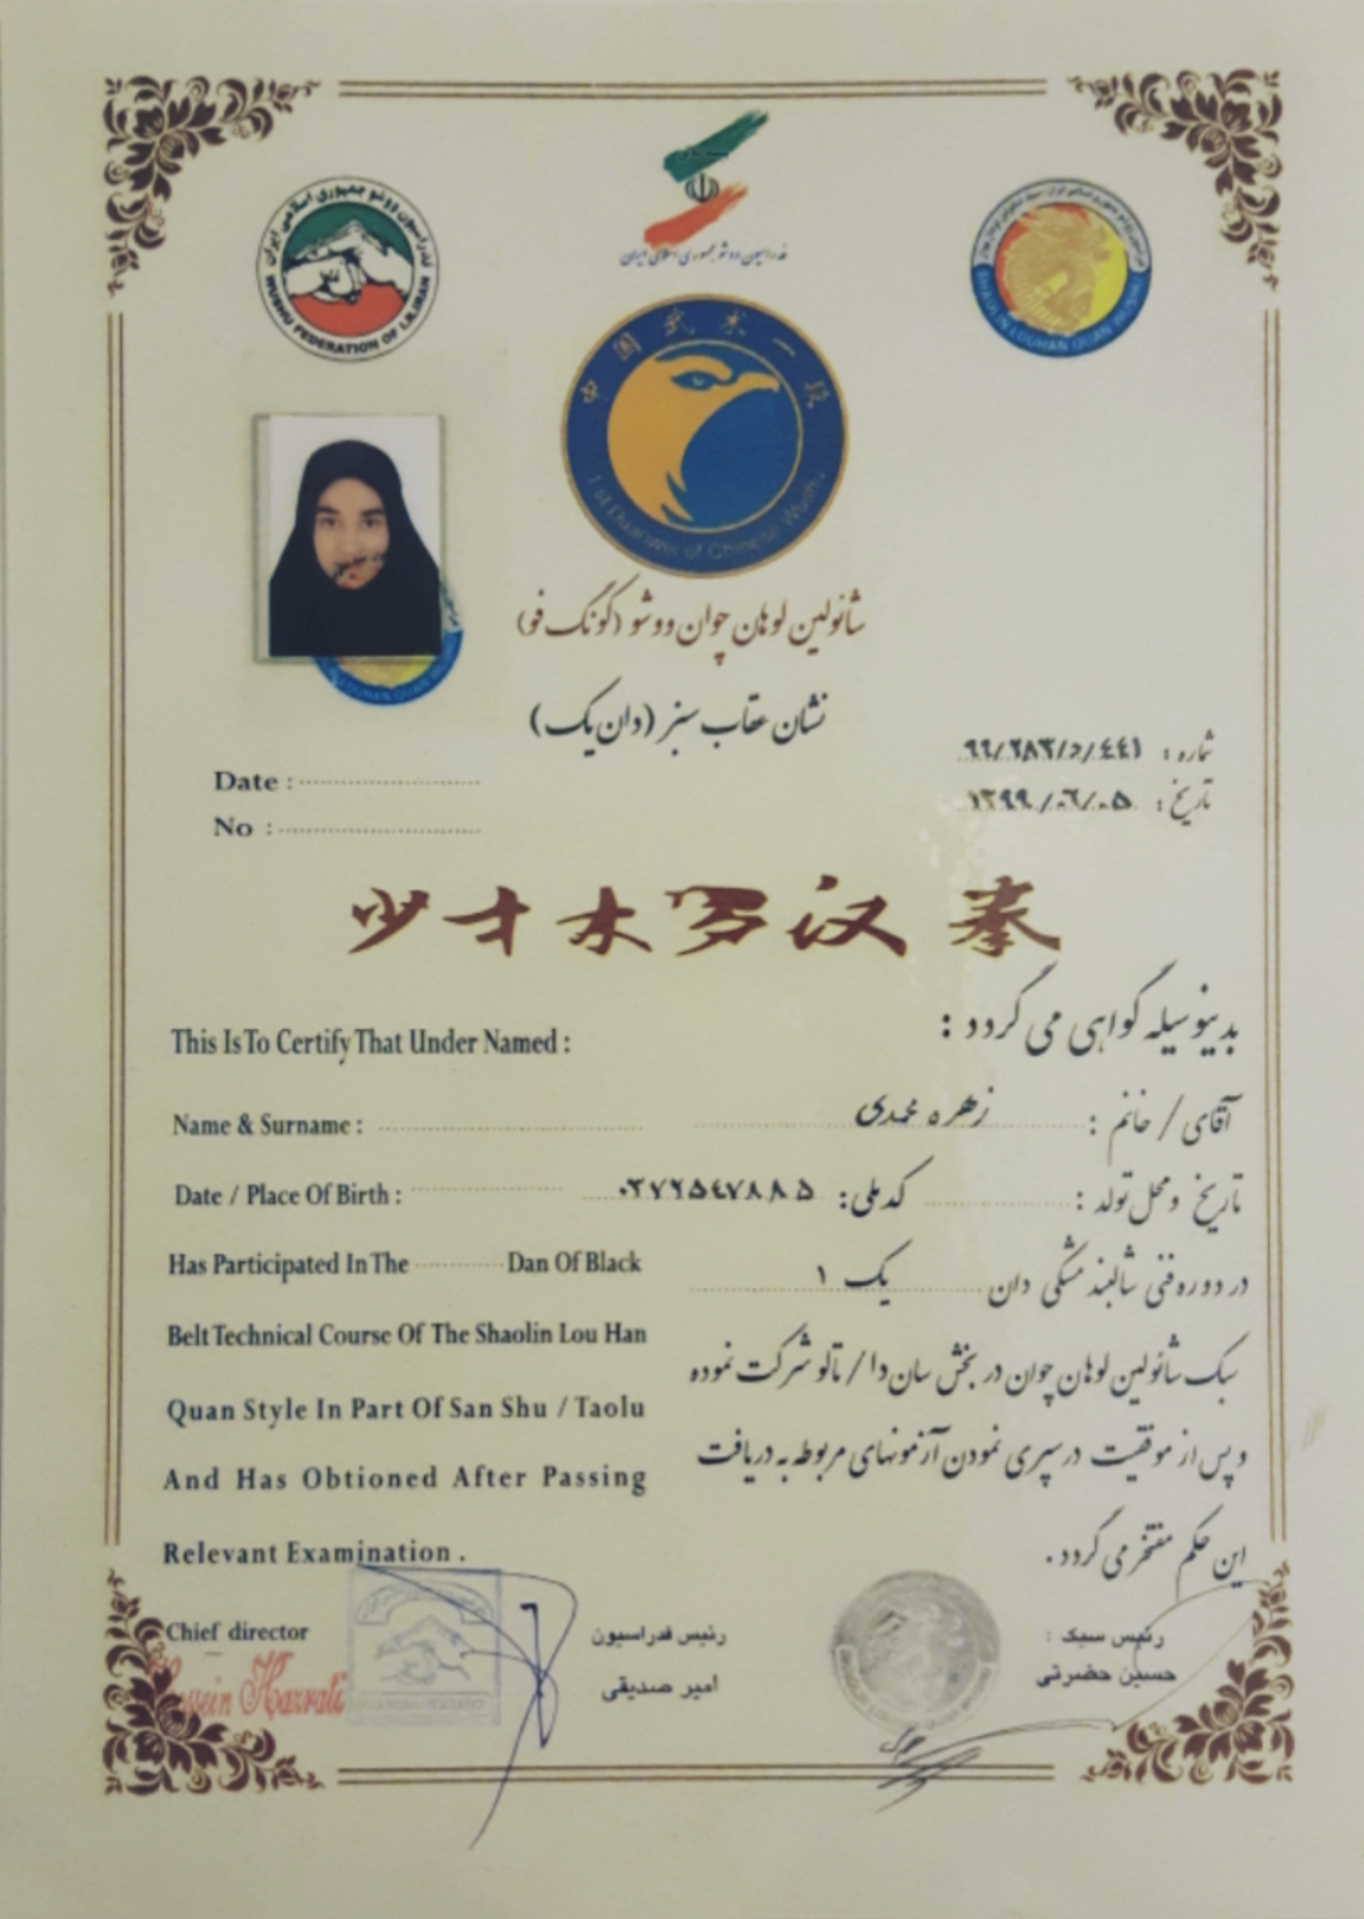 فدراسیون ووشو جمهوری اسلامی ایران
WUSHU FEDERATION OF I.R.IRAN
فدراسیون ووشو جمهوری اسلامی ایران
SHAOLIN LOUHAN QUAN WUSHU
中国武术一段
1st Duanwei of Chinese Wushu
LOUHAN QUAN
شائولین لوهان چوان ووشو (کونگ فو)
نشان عقاب سبز (دان یک)
شماره : ۹۹/۲۸۳/د/۴۴۱
Date :
تاریخ : ۱۳۹۹/۰۶/۰۵
No :
少才木罗汉 拳
بدینوسیله گواهی می گردد :
This Is To Certify That Under Named :
آقای / خانم : زهره محمدی
Name & Surname :
تاریخ و محل تولد : کد ملی: ۰۳۷۲۵۴۷۸۸۵
Date / Place Of Birth :
در دوره فنی شالبند مشکی دان یک ۱
Has Participated In The Dan Of Black
سبک شائولین لوهان چوان در بخش سان دا / تالو شرکت نموده
Belt Technical Course Of The Shaolin Lou Han
و پس از موفقیت در سپری نمودن آزمونهای مربوطه به دریافت
Quan Style In Part Of San Shu / Taolu
این حکم مفتخر می گردد .
And Has Obtioned After Passing
Relevant Examination .
رئیس سبک :
حسین حضرتی
رئیس فدراسیون
امیر صدیقی
Chief director
Hossein Hazrati